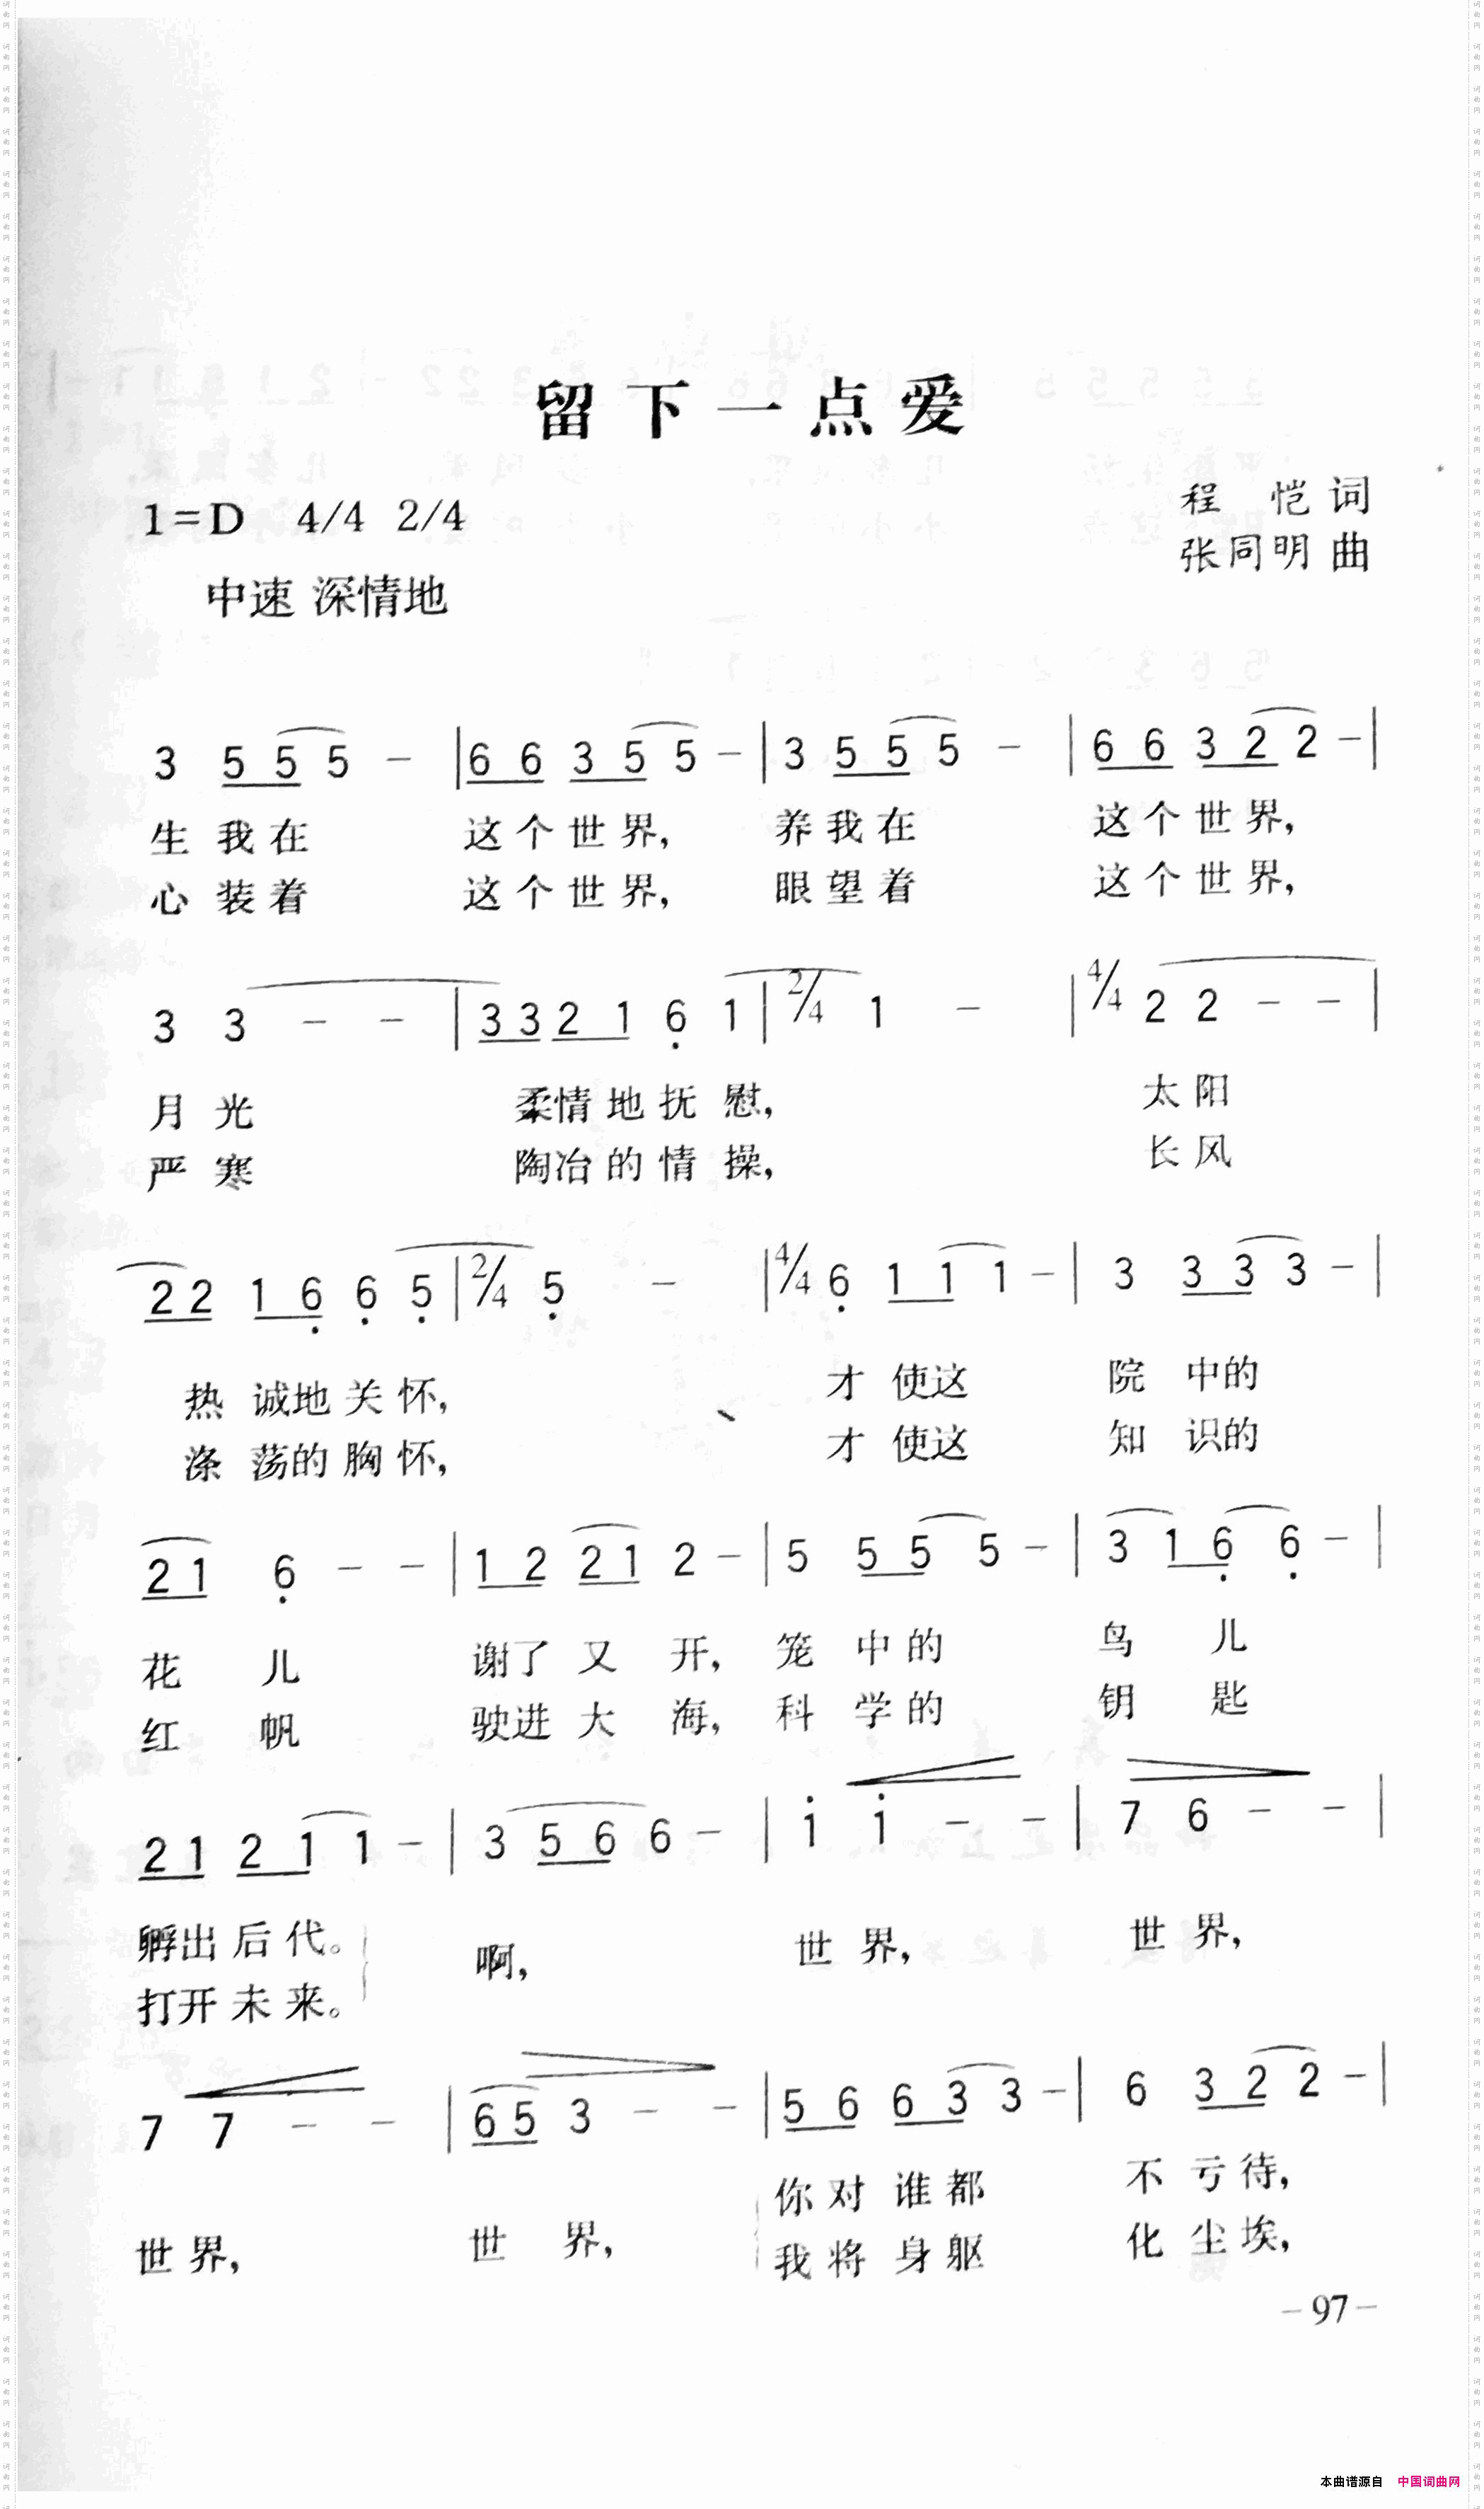 留下一点爱
1=D 4/4 2/4
程 恺 词
张同明 曲
中速 深情地
3 5 5 5 - | 6 6 3 5 5 - | 3 5 5 5 - | 6 6 3 2 2 - |
生 我 在 这 个 世 界, 养 我 在 这 个 世 界,
心 装 着 这 个 世 界, 眼 望 着 这 个 世 界,
3 3 - - | 3 3 2 1 6 1 | 2/4 1 - | 4/4 2 2 - - |
月 光 柔情 地 抚 慰, 太 阳
严 寒 陶冶 的 情 操, 长 风
2 2 1 6 6 5 | 2/4 5 - | 4/4 6 1 1 1 - | 3 3 3 3 - |
热 诚地 关 怀, 才 使这 院 中的
涤 荡的 胸 怀, 才 使这 知 识的
2 1 6 - - | 1 2 2 1 2 - | 5 5 5 5 - | 3 1 6 6 - |
花 儿 谢了 又 开, 笼 中 的 鸟 儿
红 帆 驶进 大 海, 科 学 的 钥 匙
2 1 2 1 1 - | 3 5 6 6 - | i i - - | 7 6 - - |
孵出 后 代。 啊, 世 界, 世 界,
打开 未 来。
7 7 - - | 6 5 3 - - | 5 6 6 3 3 - | 6 3 2 2 - |
你 对 谁 都 不 亏 待,
世 界, 世 界,
我 将 身 躯 化 尘 埃,
-97-
本曲谱源自 中国词曲网